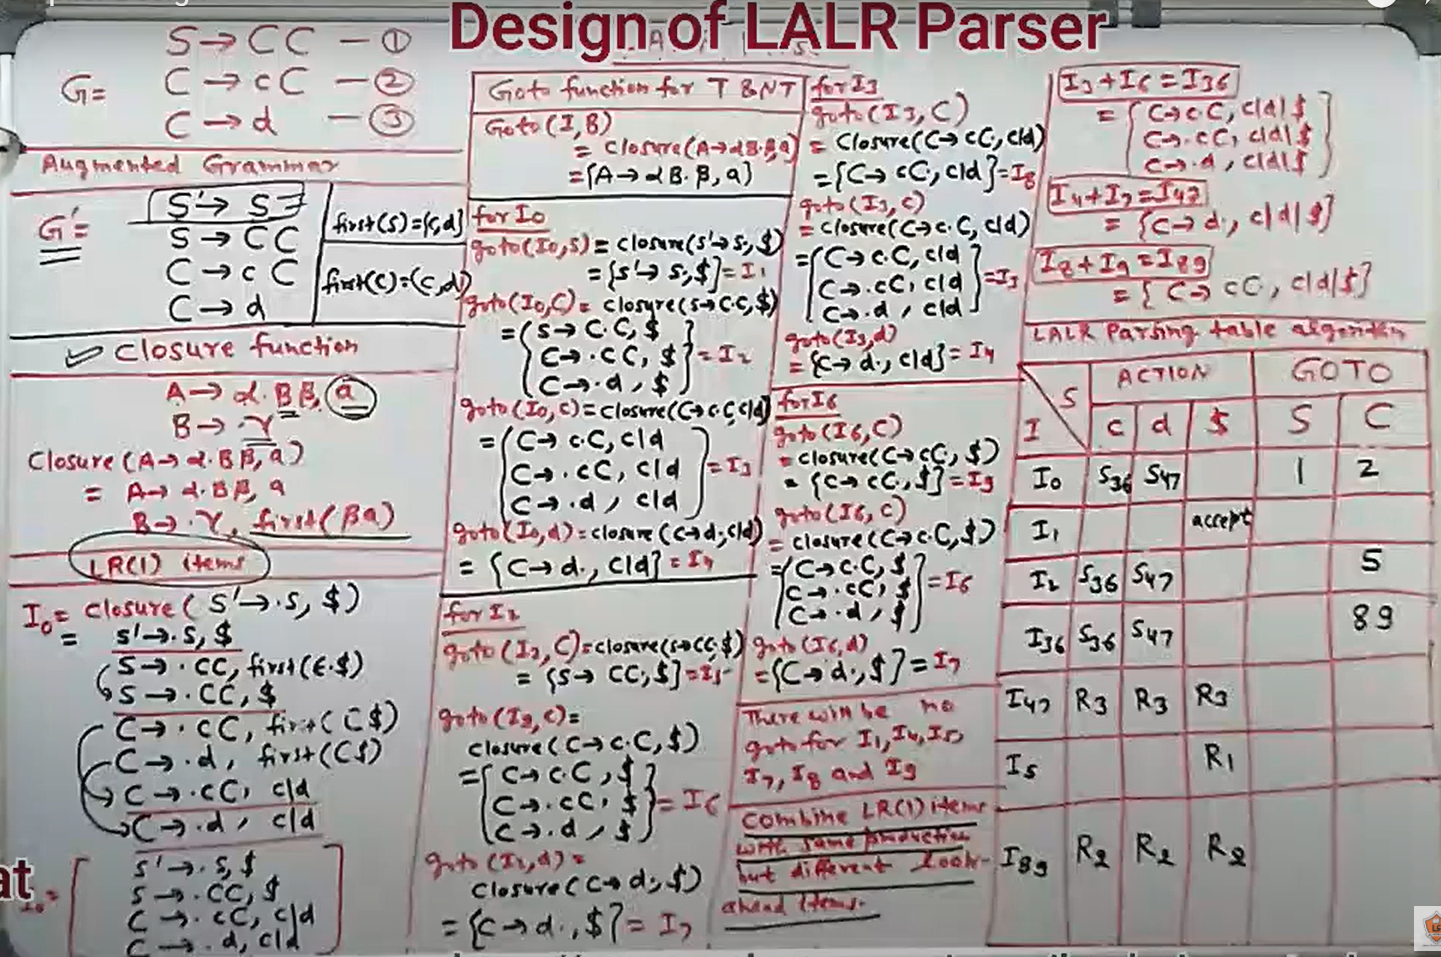 Design of LALR Parser
G=
S → CC — ①
C → cC — ②
C → d — ③
Augmented Grammar
G'=
S' → S
S → CC
C → c C
C → d
first(S)={c,d}
first(C)=(c,d)
Closure function
A → α.Bβ, a
B → .γ
Closure (A → α.Bβ, a)
= A → α.Bβ, a
B → .γ, first(βa)
LR(1) items
I₀ = closure( S' → .S, $)
= S' → .S, $
S → .CC, first(ε.$)
S → .CC, $
C → .cC, first(C$)
C → .d, first(C$)
C → .cC, c/d
C → .d, c/d
at
I₀=
S' → .S, $
S → .CC, $
C → .cC, c/d
C → .d, c/d
Goto function for T & NT
Goto (I, B)
= closure(A → αB.β, a)
= {A → αB.β, a}
for I₀
goto(I₀,S) = closure(S' → S., $)
= {S' → S., $} = I₁
goto(I₀,C) = closure(S → C.C, $)
= {S → C.C, $
C → .cC, $} = I₂
C → .d, $
goto(I₀,c) = closure(C → c.C, c/d)
= {C → c.C, c/d
C → .cC, c/d} = I₃
C → .d, c/d
goto(I₀,d) = closure (C → d., c/d)
= {C → d., c/d} = I₄
for I₂
goto (I₂, C) = closure(S → CC., $)
= {S → CC., $} = I₅
goto (I₂, c) =
closure (C → c.C, $)
= {C → c.C, $
C → .cC, $} = I₆
C → .d, $
goto (I₂, d) =
closure (C → d., $)
= {C → d., $} = I₇
for I3
goto (I3, C)
= closure(C → cC., c/d)
= {C → cC., c/d} = I₈
goto (I₃, c)
= closure(C → c.C, c/d)
= {C → c.C, c/d
C → .cC, c/d} = I₃
C → .d, c/d
goto(I₃,d)
= {C → d., c/d} = I₄
for I6
goto (I6, C)
= closure(C → cC., $)
= {C → cC., $} = I9
goto (I6, c)
= closure(C → c.C, $)
= {C → c.C, $
C → .cC, $} = I₆
C → .d, $
goto (I6, d)
= {C → d., $} = I₇
There will be no
goto for I₁, I₄, I₅,
I₇, I₈ and I₉
Combine LR(1) items
with same production
but different look-
ahead items.
I₃ + I₆ = I36
= {C → c.C, c/d/$
C → .cC, c/d/$
C → .d, c/d/$}
I₄ + I₇ = I47
= {C → d., c/d/$}
I₈ + I₉ = I89
= { C → cC., c/d/$}
LALR Parsing table algorithm
S ACTION GOTO
I c d $ S C
I₀ S36 S47 1 2
I₁ accept
I₂ S36 S47 5
I36 S36 S47 89
I47 R3 R3 R3
I5 R1
I89 R2 R2 R2